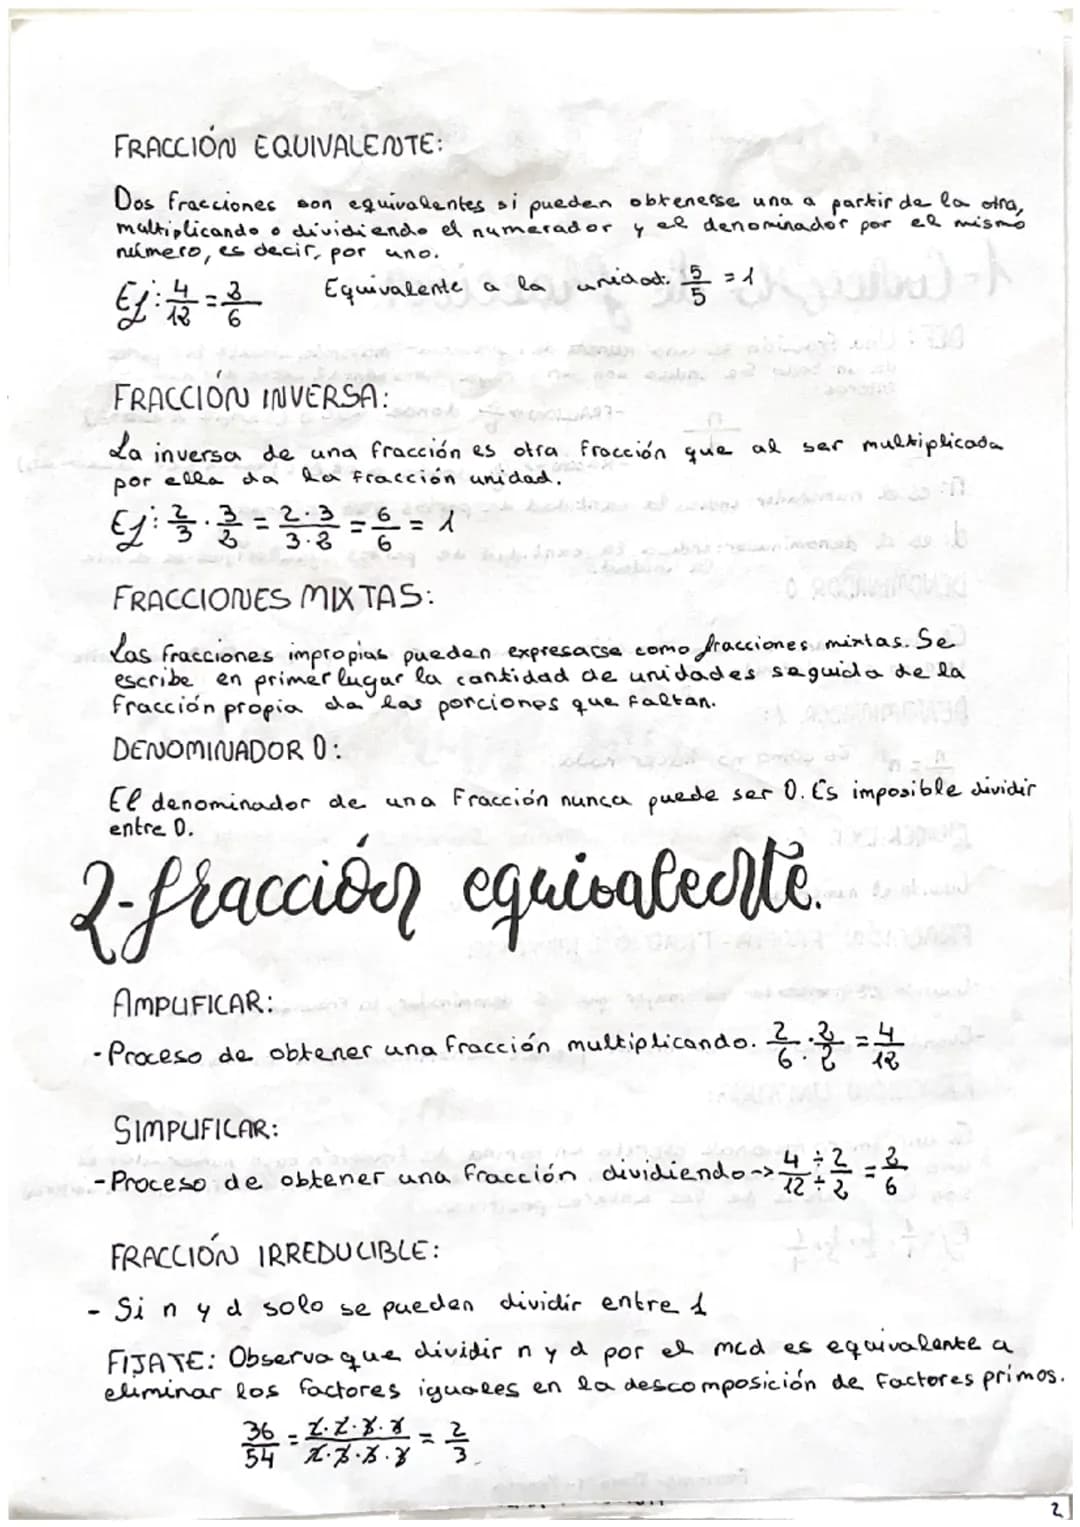 FRACCIÓN EQUIVALENTE:
Dos fracciones son equivalentes si pueden obtenerse una a partir de la otra,
multiplicando o dividiendo el numerador y el denominador por el mismo
número, es decir, por uno.
Ej: 4/12 = 2/6 Equivalente a la unidad: 5/5 = 1
FRACCIÓN INVERSA:
La inversa de una fracción es otra fracción que al ser multiplicada
por ella da la fracción unidad.
Ej: 2/3 · 3/2 = 2·3/3·2 = 6/6 = 1
FRACCIONES MIXTAS:
Las fracciones impropias pueden expresarse como fracciones mixtas. Se
escribe en primer lugar la cantidad de unidades seguida de la
fracción propia da las porciones que faltan.
DENOMINADOR 0:
El denominador de una fracción nunca puede ser 0. Es imposible dividir
entre 0.
2-fracción equivalente.
AMPLIFICAR:
- Proceso de obtener una fracción multiplicando. 2/6 · 2/2 = 4/12
SIMPLIFICAR:
- Proceso de obtener una fracción dividiendo -> 4÷2/12÷2 = 2/6
FRACCIÓN IRREDUCIBLE:
- Si n y d solo se pueden dividir entre 1
FIJATE: Observa que dividir n y d por el mcd es equivalente a
eliminar los factores iguales en la descomposición de factores primos.
36/54 = 2·2·3·3/2·3·3·3 = 2/3.
2